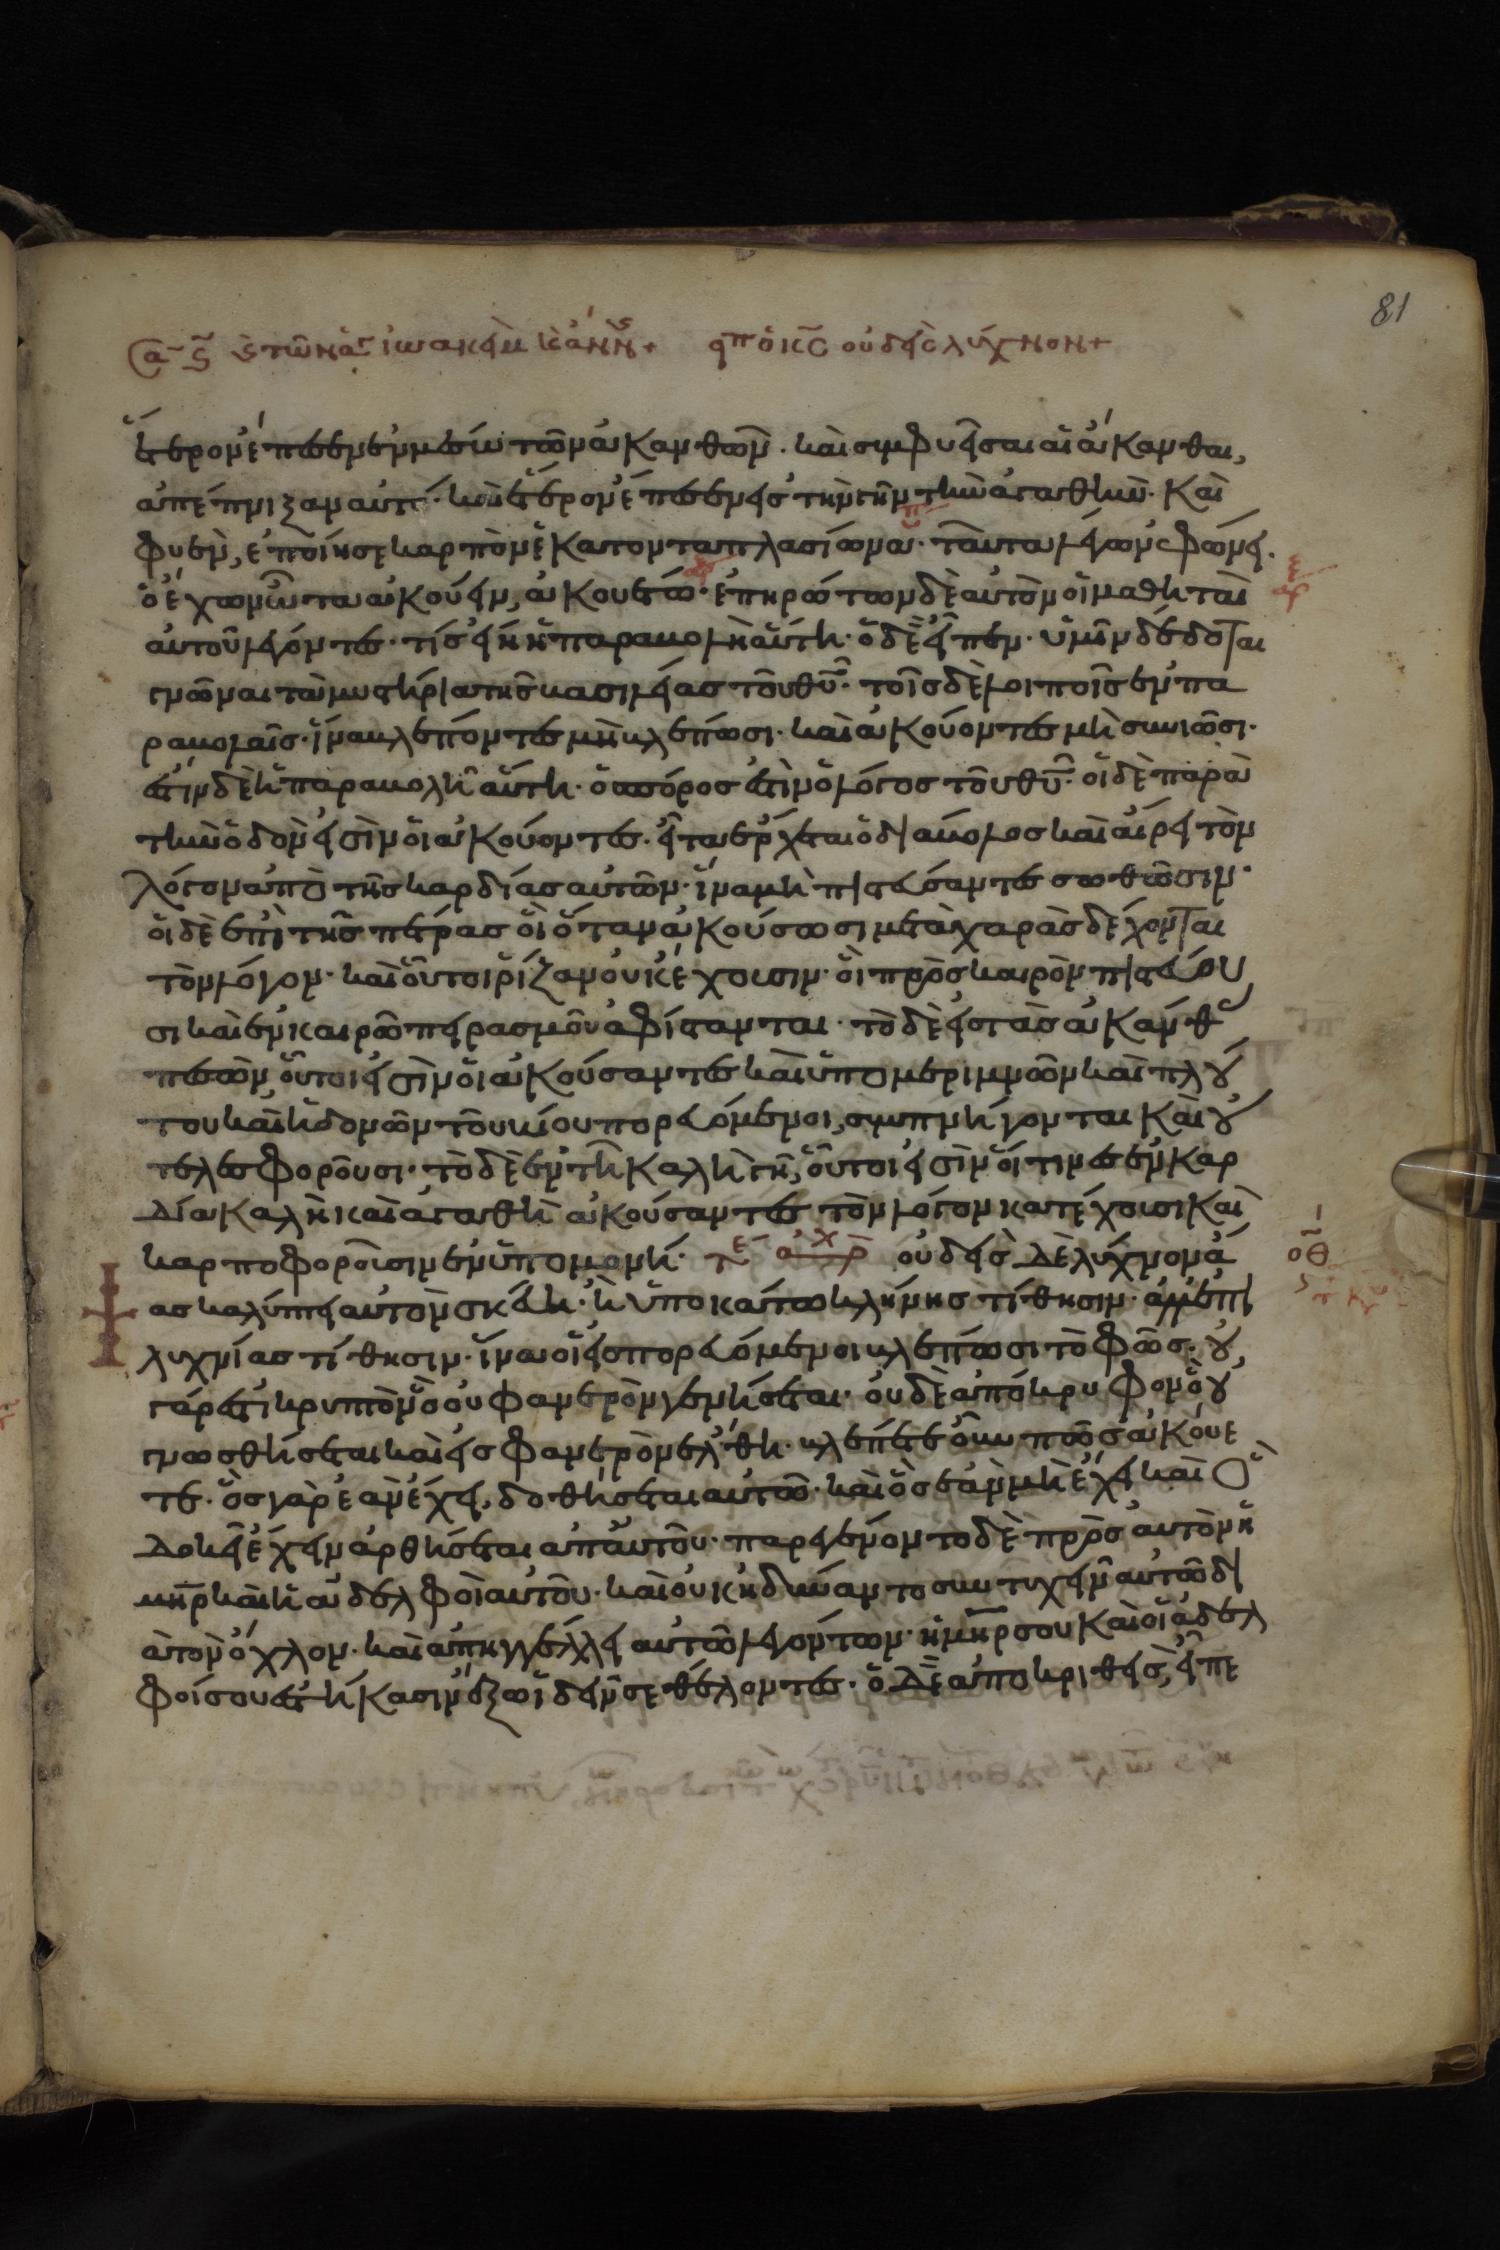 81
ἕτερον ἔπεσεν ἐν μέσω τῶν ἀκανθῶν. καὶ συμφυεῖσαι αἱ ἄκανθαι,
ἀπέπνιξαν αὐτό. καὶ ἕτερον ἔπεσεν εἰς τὴν γῆν τὴν ἀγαθήν. καὶ
φυὲν, ἐποίησε καρπὸν ἑκατονταπλασίωνα. ταῦτα λέγων ἐφώνει.
ὁ ἔχων ὦτα ἀκούειν, ἀκουέτω. ἐπηρώτων δὲ αὐτὸν οἱ μαθηταὶ
αὐτοῦ λέγοντες. τίς εἴη ἡ παραβολὴ αὕτη. ὁ δὲ εἶπεν. ὑμῖν δέδοται
γνῶναι τὰ μυστήρια τῆς βασιλείας τοῦ θυ. τοῖς δὲ λοιποῖς ἐν πα
ραβολαῖς. ἵνα βλέποντες μὴ βλέπωσι. καὶ ἀκούοντες μὴ συνιῶσι.
ἔστιν δὲ ἡ παραβολὴ αὕτη. ὁ σπόρος ἐστὶν ὁ λόγος τοῦ θυ. οἱ δὲ παρὰ
τὴν ὁδὸν εἰσὶν οἱ ἀκούοντες. εἶτα ἔρχεται ὁ διάβολος καὶ αἴρει τὸν
λόγον ἀπὸ τῆς καρδίας αὐτῶν. ἵνα μὴ πιστεύσαντες σωθῶσιν.
οἱ δὲ ἐπὶ τῆς πέτρας οἳ ὅταν ἀκούσωσι μετὰ χαρᾶς δέχονται
τὸν λόγον. καὶ οὗτοι ῥίζαν οὐκ ἔχουσιν. οἳ πρὸς καιρὸν πιστεύου
σι καὶ ἐν καιρῶ πειρασμοῦ ἀφίστανται. τὸ δὲ εἰς τὰς ἀκάνθ
πεσὸν, οὗτοι εἰσὶν οἱ ἀκούσαντες καὶ ὑπὸ μεριμνῶν καὶ πλού
του καὶ ἡδονῶν τοῦ βίου πορευόμενοι, συμπνίγονται καὶ οὐ
τελεσφοροῦσι. τὸ δὲ ἐν τῆ καλῆ γῆ, οὗτοι εἰσὶν οἵτινες ἐν καρ
δία καλῆ καὶ ἀγαθῆ ἀκούσαντες τὸν λόγον κατέχουσι καὶ
καρποφοροῦσιν ἐν ὑπομονῆ. οὐδεὶς δὲ λύχνον ἅ
ψας καλύπτει αὐτὸν σκεύει. ἢ ὑποκάτω κλίνης τίθησιν. ἀλλ' ἐπὶ
λυχνίας τίθησιν. ἵνα οἱ εἰσπορευόμενοι βλέπωσι τὸ φῶς. οὐ
γάρ ἐστι κρυπτὸν ὃ οὐ φανερὸν γενήσεται. οὐδὲ ἀπόκρυφον ὃ οὐ
γνωσθήσεται καὶ εἰς φανερὸν ἔλθη. βλέπετε οὖν πῶς ἀκούε
τε. ὃς γὰρ ἐὰν ἔχει, δοθήσεται αὐτῶ. καὶ ὃς ἐὰν μὴ ἔχει καὶ ὃ
δοκεῖ ἔχειν ἀρθήσεται ἀπ' αὐτοῦ. παρεγένοντο δὲ πρὸς αὐτὸν ἡ
μηρ καὶ οἱ ἀδελφοὶ αὐτοῦ. καὶ οὐκ ἠδύναντο συντυχεῖν αὐτῶ δι
ὰ τὸν ὄχλον. καὶ ἀπηγγέλλει αὐτῶ λεγόντων. ἡ μηρ σου καὶ οἱ ἀδελ
φοί σου ἑστήκασιν ἔξω ἰδεῖν σε θέλοντες. ὁ δὲ ἀποκριθεὶς, εἶπε
οθ